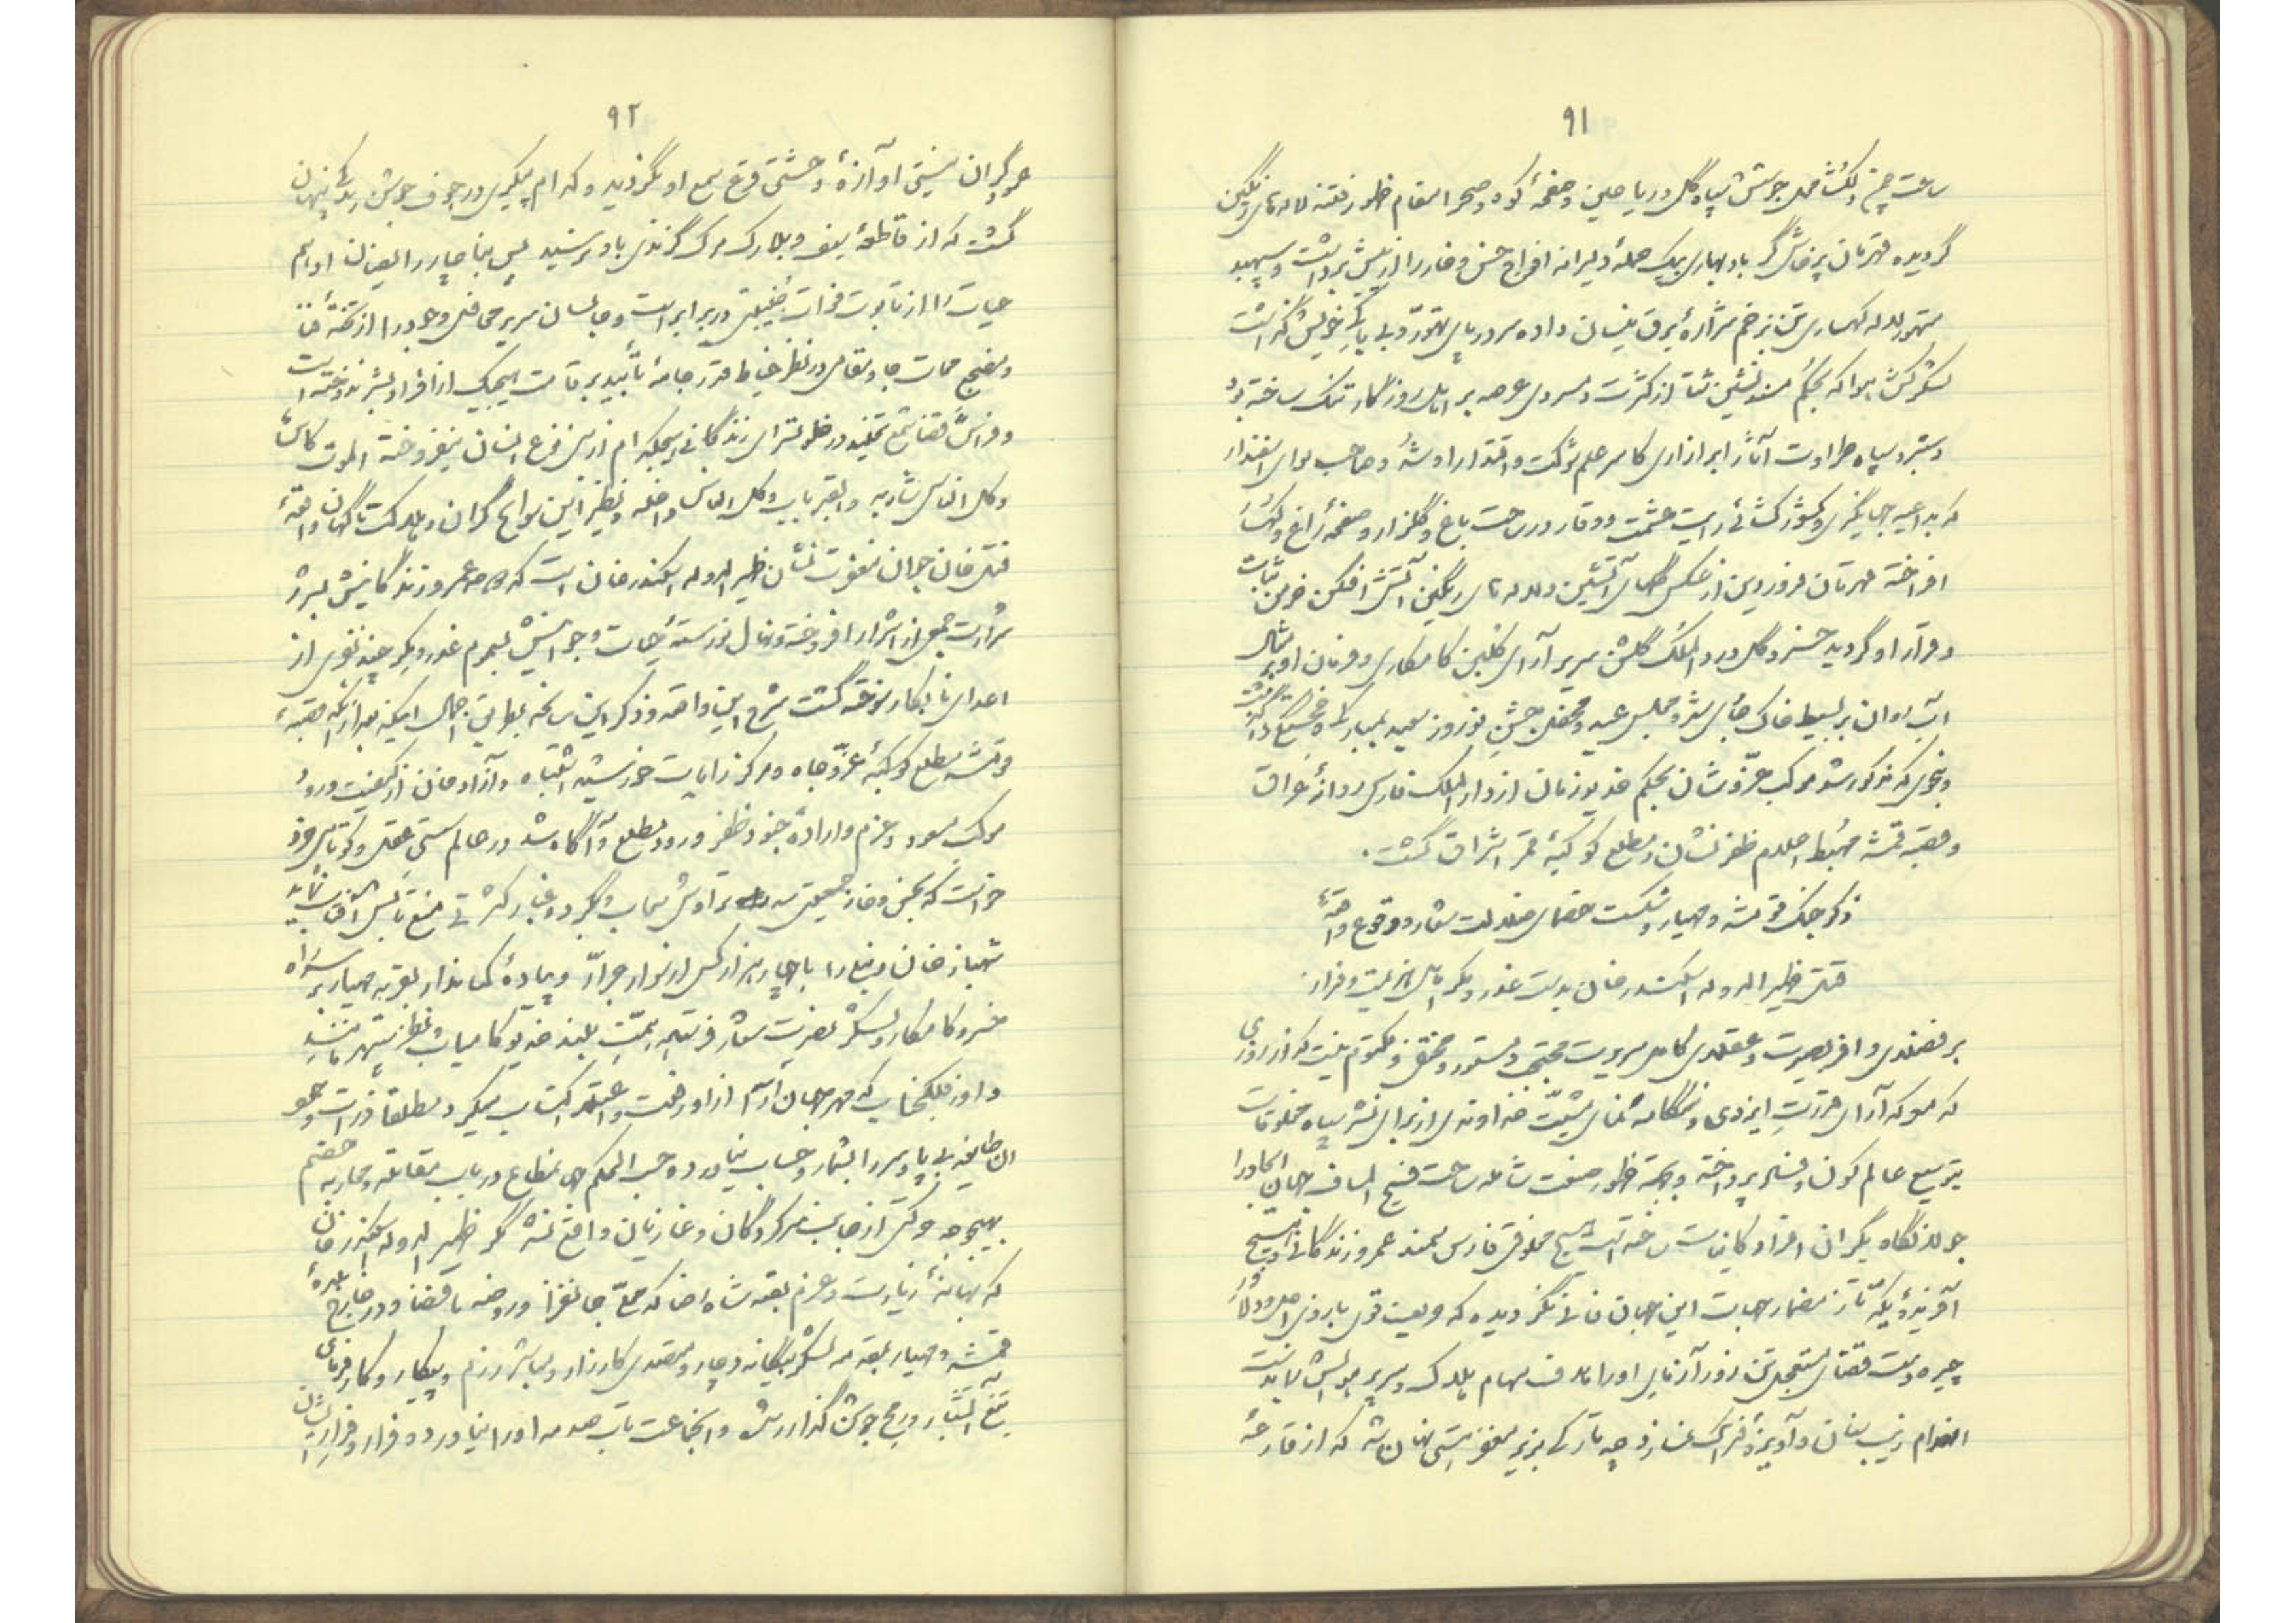 ۹۱
ساحت چمن دلگشا محل جوشش سپاه گل و ریاحین و صفحهٔ کوه و صحرا مقام ظهور فتنه لاله های رنگین
گردیده قهرمان پرخاشگر باد بهاری بیک حملهٔ دلیرانه افواج خس و خار را از پیش برداشت و سپهبد
متهور لاله کهساری تن بزخم شراره برق نیسان داده سر در پای تهور و بی باکی خویش گذاشت
لشکرکش هوا که بحکم مسند نشین شتا از کثرت و سردی عرصه بر اهل روزگار تنگ ساخته بود
دستبرد سپاه طراوت آثار ابر آزاری کاسر علم شوکت و اقتدار او شد و صاحب لوای اسفندار
که بداعیه جهانگیری و کشورگشائی رایت حشمت و وقار در ساحت باغ و گلزار و صفحهٔ راغ و کهسار
افراخته قهرمان فروردین از عکس گلهای آتشین و لاله های رنگین آتش افکن خرمن ثبات
و قرار او گردید خسرو گل در دارالملک گلشن سریر آرای گلبن کامکاری و فرمان او بر مثال
آب روان بر بسیط خاک جاری شد و مجلس عید و محفل جشن نوروز سعید بمبارکی
و بنحوی که مذکور شد موکب عز و شان بحکم خدیو زمان از دارالملک فارس روانهٔ عراق
و قصبه قمشه مهبط اعلام ظفر نشان و مطلع کوکبهٔ قمر اشراق گشت.
ذکر جنگ قومشه و مهیار و شکست خصمای ضلالت شعار و وقوع واقعهٔ
قتل ظهیر الدوله اسکندر خان بدست غدر و مکر اهل هزیمت و فرار.
بر فضلای وافر بصیرت و عقلای کامل سریرت محتجب و مستور و مختفی و مکتوم نیست که از روزی
که معرکه آرای قدرت ایزدی و هنگامه نمای مشیت خداوندی از برای نشر سپاه مخلوقات
بتوسیع عالم کون و فساد پرداخته و بجهة ظهور صنعت شامله ساحت فسیح المساف جهان ایجاد را
جولانگاه یکران افراد کاینات ساخته است هیچ مخلوقی فارس سمند عمر و زندگانی و هیچ
آفریدهٔ یکه تاز مضمار حیات این جهان فانی نگردیده که حریف قوی بازوی اجل و دلاور
چیره دست قضای مستعجل تن زور آزمای او را هدف سهام هلاک و سریر هولش
انعدام زیب سنان و آویزهٔ فتراک نساز د چه تارکی بزیر مغفر هستی نهان شد که از قارعهٔ
۹۲
عمود گران نیستی او آوازهٔ وحشتی قرع سمع او نگردید و کدام پیکری در جوف جوشن زندگی پنهان
گشت که از قاطعهٔ سیف و بلارک مرگ گزندی باو نرسید
حیات را از تابوت ممات در برابر است و جالسان سریر محافل وجود را از تختهٔ
و نسج ممات جا و مقامی در نظر خیاط قدر جامهٔ تأبید بر قامت هیچیک از افراد بشر ندوخته است
و فراش قضا شمع تخلید در خلوتسرای زندگانی هیچکدام از بنی نوع انسان نیفروخته الموت کاس
و کل الناس شاربه والقبر باب و کل الناس داخله و نظیر این سوانح گران و هلاکت ناگهان واقعهٔ
قتل خان جوان مغفرت نشان ظهیر الدوله اسکندر خان است که خرمن عمر و زندگانیش بشرر
شرارت جمعی از اشرار افروخته و نهال نورستهٔ حیات و جوانیش بسموم غدر و مکر چند نفری از
اعدای نابکار سوخته گشت شرح این واقعه و ذکر این سانحه بطریق اجمال اینکه بعد از آنکه قصبهٔ
قومشه مطلع کوکبهٔ عز و جاه و مرکز رایات خورشید اشتباه و آزاد خان از کیفیت ورود
موکب مسعود و عزم و ارادهٔ جنود ظفر ورود مطلع و آگاه شد در عالم سستی عقل و کوتاهی خرد
خواست که بخس و خار جمعیتی سد تراوش سحاب و بگرد و غبار کثرتی منع تابش آفتاب نماید
شهباز خان دنبلی را با چهار هزار کس از سوار جرار و پیادهٔ کماندار بقریه مهیار بر سر راه
خسرو کامکار و لشکر نصرت شعار فرستاد همت بلند خدیو کامیاب و نظر سپهر مانند
داور فلک جناب که مهر جهان آرا از او رفعت و اعتلا اکتساب میکرد مطلقا ذرات وجود
آن طایفه بی پا و سر را بشمار و حساب نیاورده حسب الحکم جهان مطاع در باب مقابله و محاربه خصم
بهیچوجه حرکتی از جانب سرکردگان و غازیان واقع نشد مگر ظهیر الدوله اسکندر خان
که ببهانهٔ زیارت و عزم بقعه شاه رضا که محلی جانفزا و روضه با فضا و در خارج بلدهٔ
قمشه و مهیار بمقدمه لشکر بیگانه دوچار و متصدی کارزار و مباشر رزم و پیکار و کارفرمای
تیغ آتشبار و رمح جوشن گذار شد و آنجماعت تاب صدمه او را نیاورده فرار و قرار ایشان